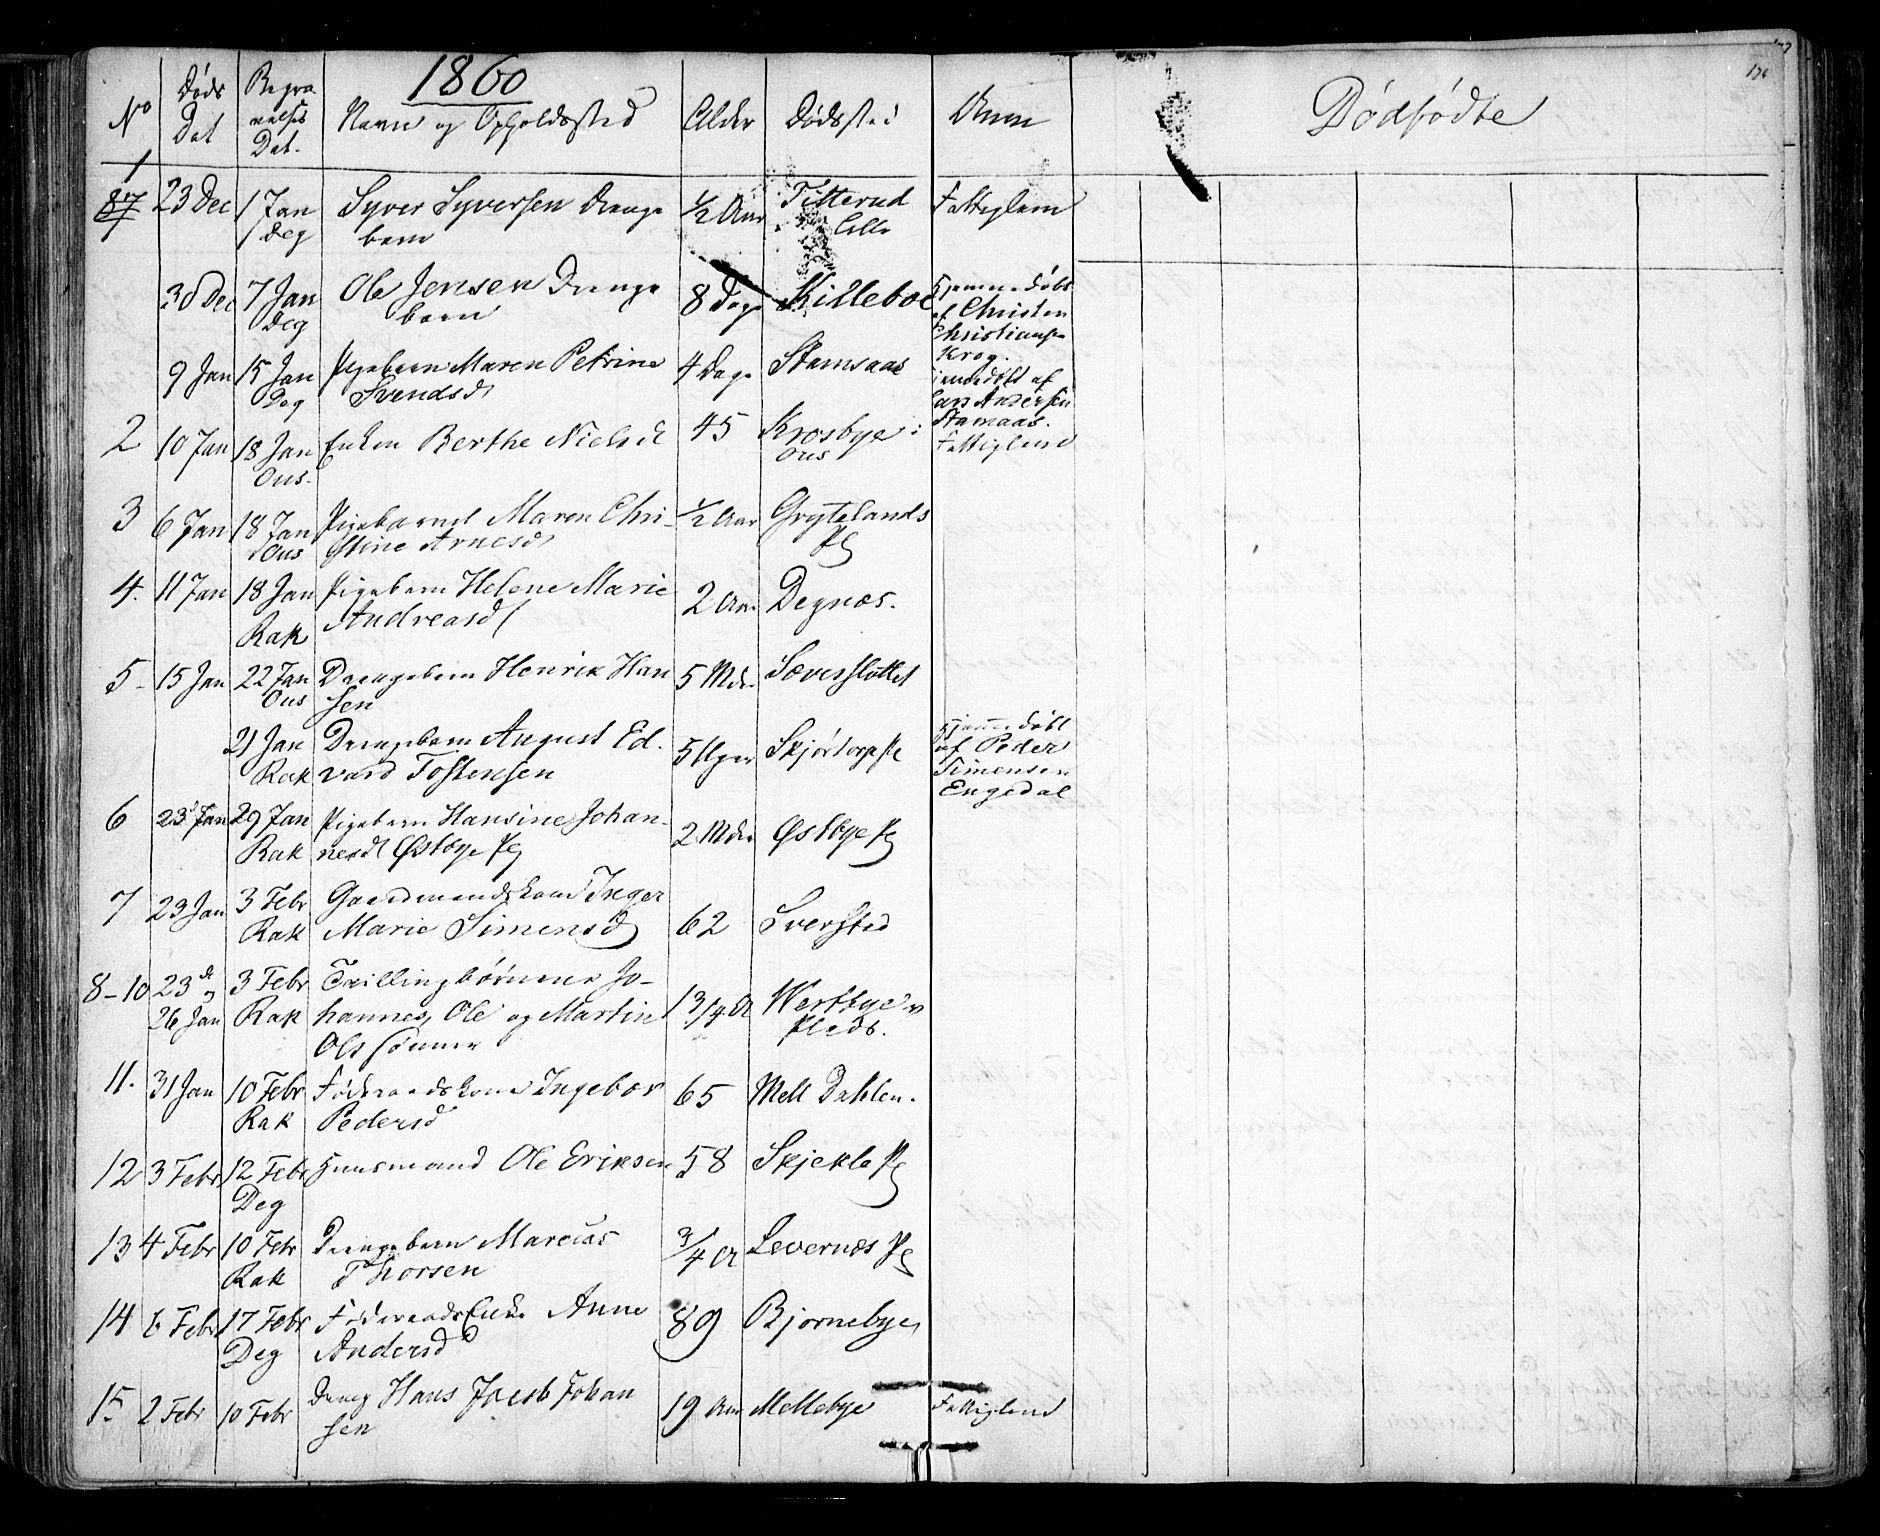 1860
No Døds Dat Begravelses Dat. Navn og Opholdssted Alder Dødssted Anm
Dødfødte
1
87 23 Dec 1 Jan Syver Syversen Drenge ½ Aar Titterud Fattiglem
Deg barn lille
30 Dec 7 Jan Ole Jensen Drenge 8 Dage Killeboe Hjemmedøbt
Deg barn af Christen
Christiansen
Krog.
9 Jan 15 Jan Pigebarn Maren Petrine 4 Dage Stamsaas hjemmedøbt af
Deg Svendsd Lars Andersen
Stamsaas.
2 10 Jan 18 Jan Enken Berthe Nielsd 45 Krosbye i Fattiglem
Ous. Ous
3 6 Jan 18 Jan Pigebarnet Maren Chri- ½ Aar Grytelands
Ous stine Arnesd Pl
4. 11 Jan 18 Jan Pigebarn Helene Marie 2 Aar Degnæs.
Rak Andreasd
5- 15 Jan 22 Jan Drengebarn Henrik Han 5 Mdr. Sæverslottet
Ous sen
21 Jan Drengebarn August Ed. 5 Uger Skjørtorp Pl Hjemmedøbt
Rak vard Tostensen af Peder
Simensen
Engedal
6 23 Jan 29 Jan Pigebarn Hansine Johan- 2 Mdr Østbye Pl
Rak nesd Østbye Pl
7 29 Jan 3 Febr Gaardmandskone Inger 62 Sversted
Rak Marie Simensd
8-10 23de og 3 Febr Trillingbørnene Jo- 1 3/4 A Westbye
26 Jan Rak hannes, Ole og Martin Plads.
Ols sønner
11. 31 Jan 10 Febr Føderaadskone Ingebor 65 Mell Dahlen.
Rak Pedersd
12 3 Febr 12 Febr Huusmand Ole Eriksen 58 Skjekle Pl
Deg
13 4 Febr 10 Febr Drengebarn Marcus 3/4 A Levernæs Pl
Rak Thorsen
14 6 Febr 17 Febr Føderaads Enke Anne 89 Bjørnebye
Deg Andersd
15 2 Febr 10 Febr Dreng Hans Jacob Johan 19 Aar Mellebye Fattiglem
sen